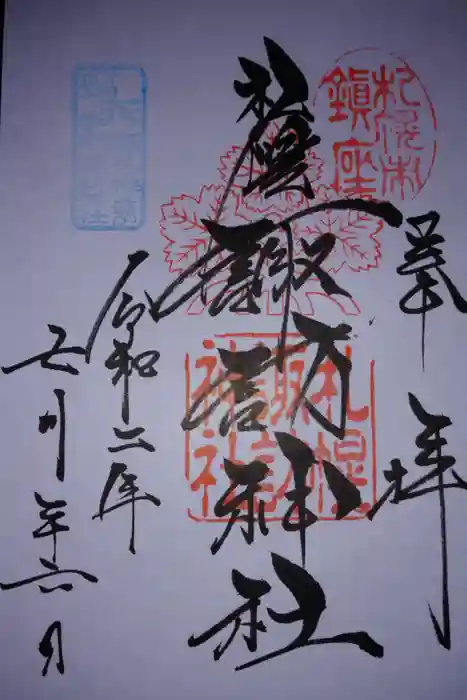 奉拝
札幌村
鎮座
札幌諏訪神社
札幌
諏訪
神社
令和二年
七月
六日